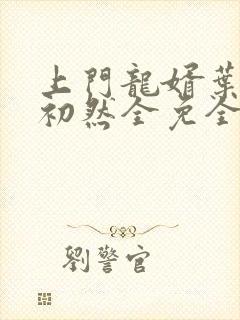 上門龍婿葉
初然全免全
劉警官